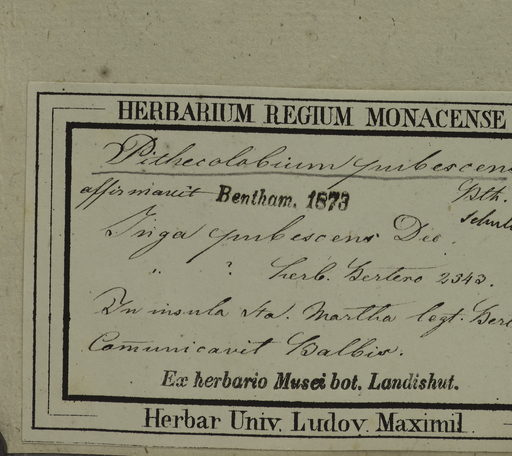 HERBARIUM REGIUM MONACENSE
Pithecolobium pubescens
Bth.
affirmavit Bentham. 1873
Inga pubescens Dec.
" " herb. Bertero 2343.
In insula Sta. Martha legt.
Comunicavit Balbis.
Ex herbario Musei bot. Landishut.
Herbar Univ. Ludov. Maximil